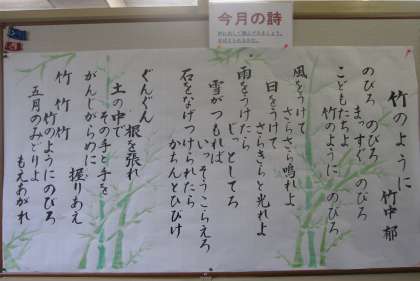 今月の詩
竹のように
竹中郁
のびろ のびろ
まっすぐ のびろ
こどもたちよ
竹のように のびろ
風をうけて
さらさら鳴れよ
日をうけて
きらきらと光れよ
雨をうけたら
じっとしてろ
雪がつもれば
いっそうこらえろ
石をなげつけられたら
かちんとひびけ
ぐんぐん
根を張れ
土の中で
その手と手を
がんじがらめに
握りあえ
竹 竹 竹
竹のようにのびろ
五月のみどりよ
もえあがれ